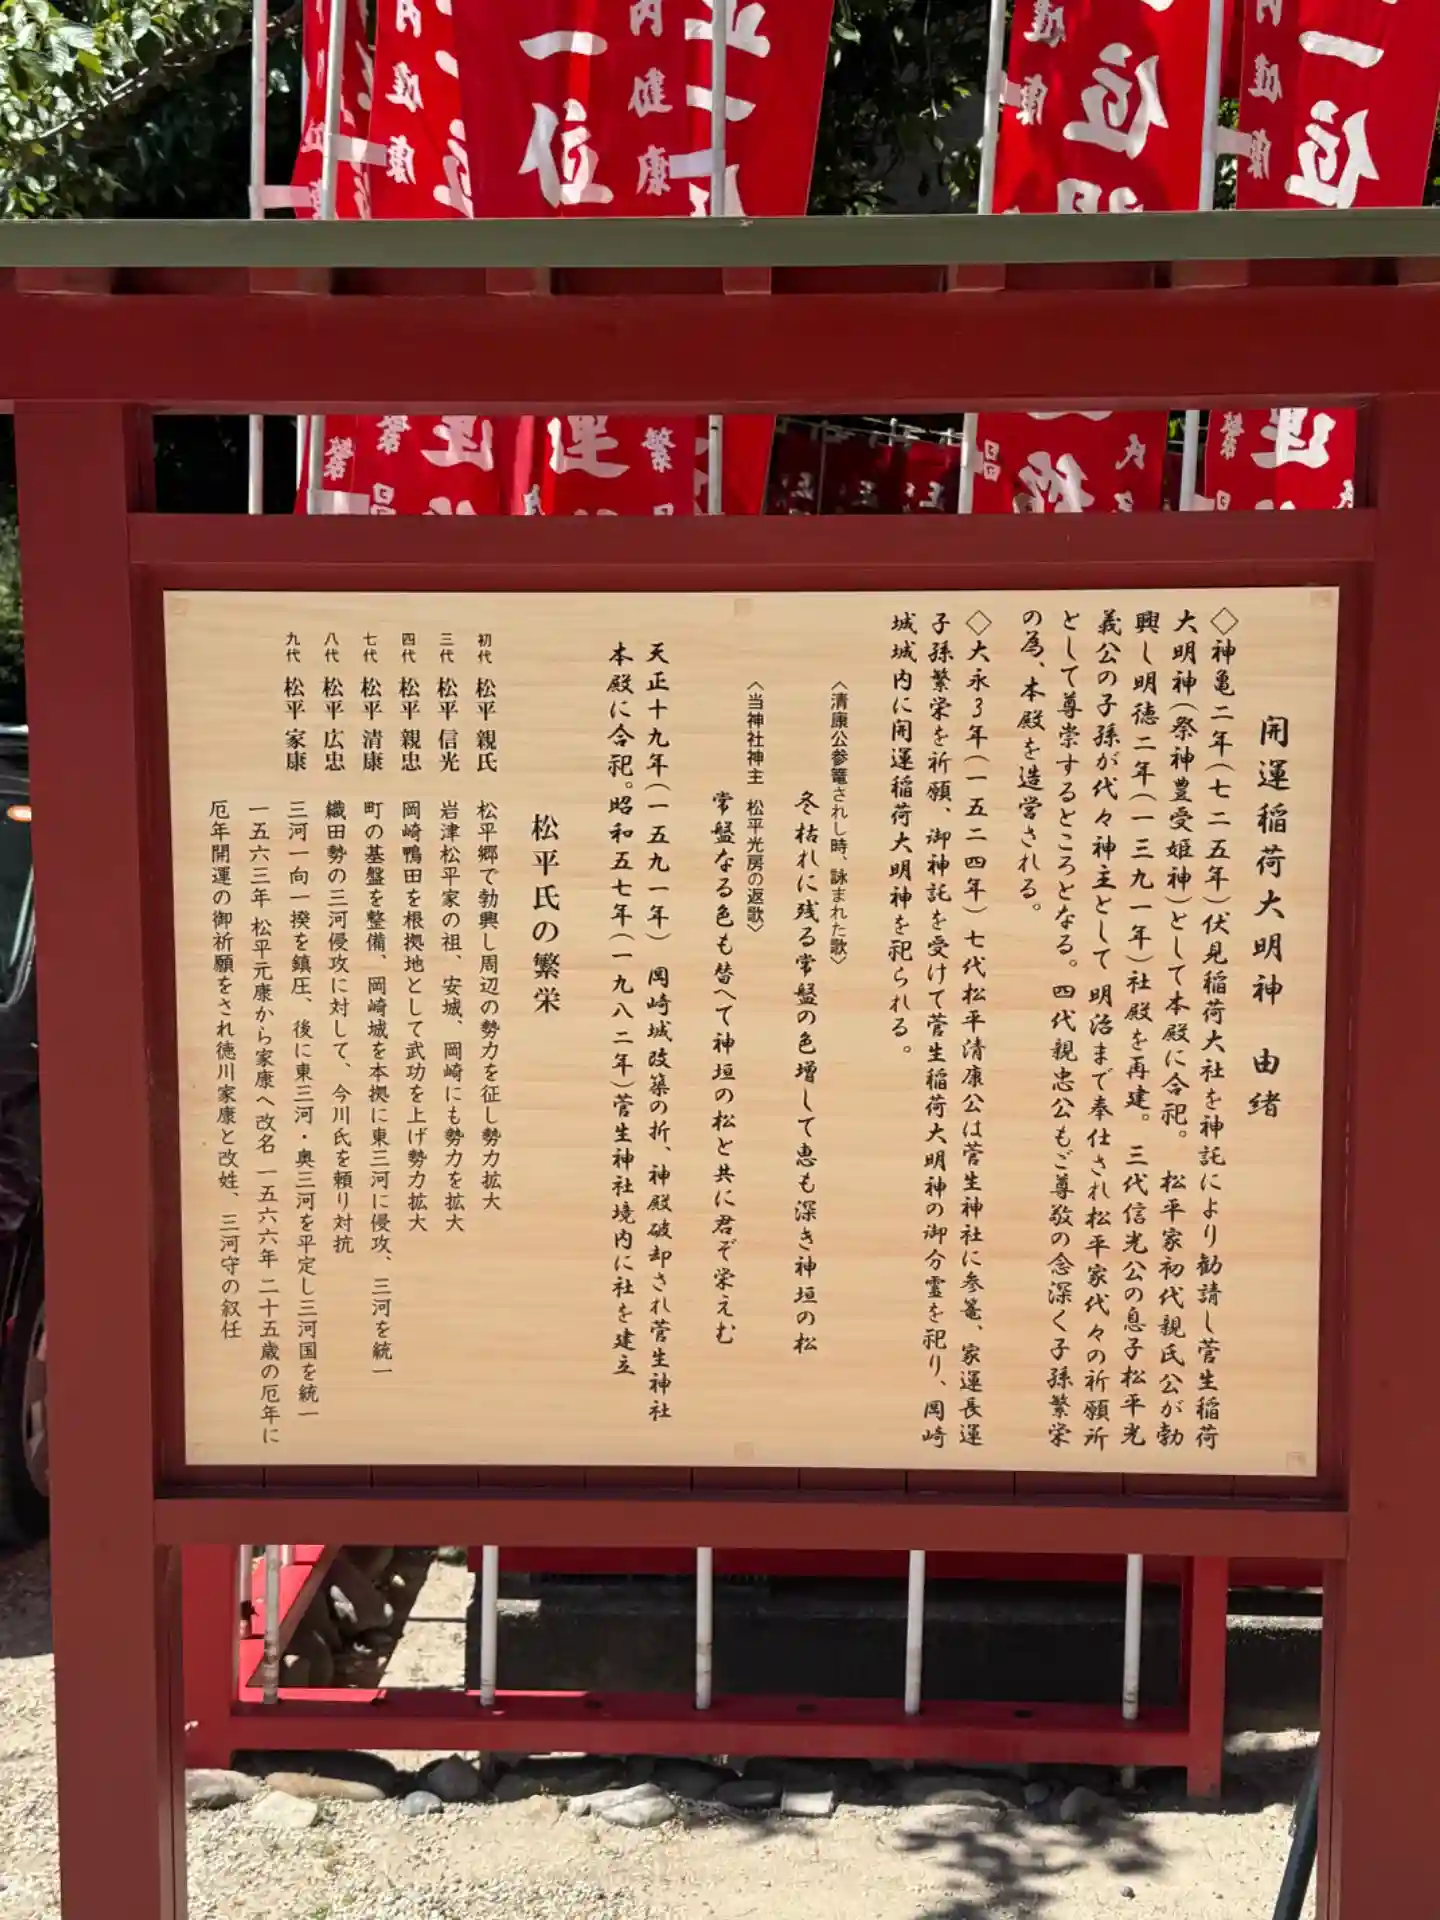 開運稲荷大明神 由緒
◇神亀二年(七二五年)伏見稲荷大社を神託により勧請し菅生稲荷
大明神(祭神豊受姫神)として本殿に合祀。 松平家初代親氏公が勃
興し明徳二年(一三九一年)社殿を再建。 三代信光公の息子松平光
義公の子孫が代々神主として 明治まで奉仕され松平家代々の祈願所
として尊崇するところとなる。四代親忠公もご尊敬の念深く子孫繁栄
の為、本殿を造営される。
◇大永3年(一五二四年) 七代松平清康公は菅生神社に参篭、家運長運
子孫繁栄を祈願、御神託を受けて菅生稲荷大明神の御分霊を祀り、岡崎
城城内に開運稲荷大明神を祀られる。
〈清康公参篭されし時、詠まれた歌〉
冬枯れに残る常盤の色増して恵も深き神垣の松
〈当神社神主 松平光房の返歌〉
常盤なる色も替へて神垣の松と共に君ぞ栄えむ
天正十九年(一五九一年) 岡崎城改築の折、神殿破却され菅生神社
本殿に合祀。昭和五七年(一九八二年)菅生神社境内に社を建立
松平氏の繁栄
初代 松平 親氏 松平郷で勃興し周辺の勢力を征し勢力拡大
三代 松平 信光 岩津松平家の祖、安城、岡崎にも勢力を拡大
四代 松平 親忠 岡崎鴨田を根拠地として武功を上げ勢力拡大
七代 松平 清康 町の基盤を整備、岡崎城を本拠に東三河に侵攻、三河を統一
八代 松平 広忠 織田勢の三河侵攻に対して、今川氏を頼り対抗
九代 松平 家康 三河一向一揆を鎮圧、後に東三河・奥三河を平定し三河国を統一
一五六三年 松平元康から家康へ改名 一五六六年 二十五歳の厄年に
厄年開運の御祈願をされ徳川家康と改姓、三河守の叙任
一位
健康
一位
一位
健康